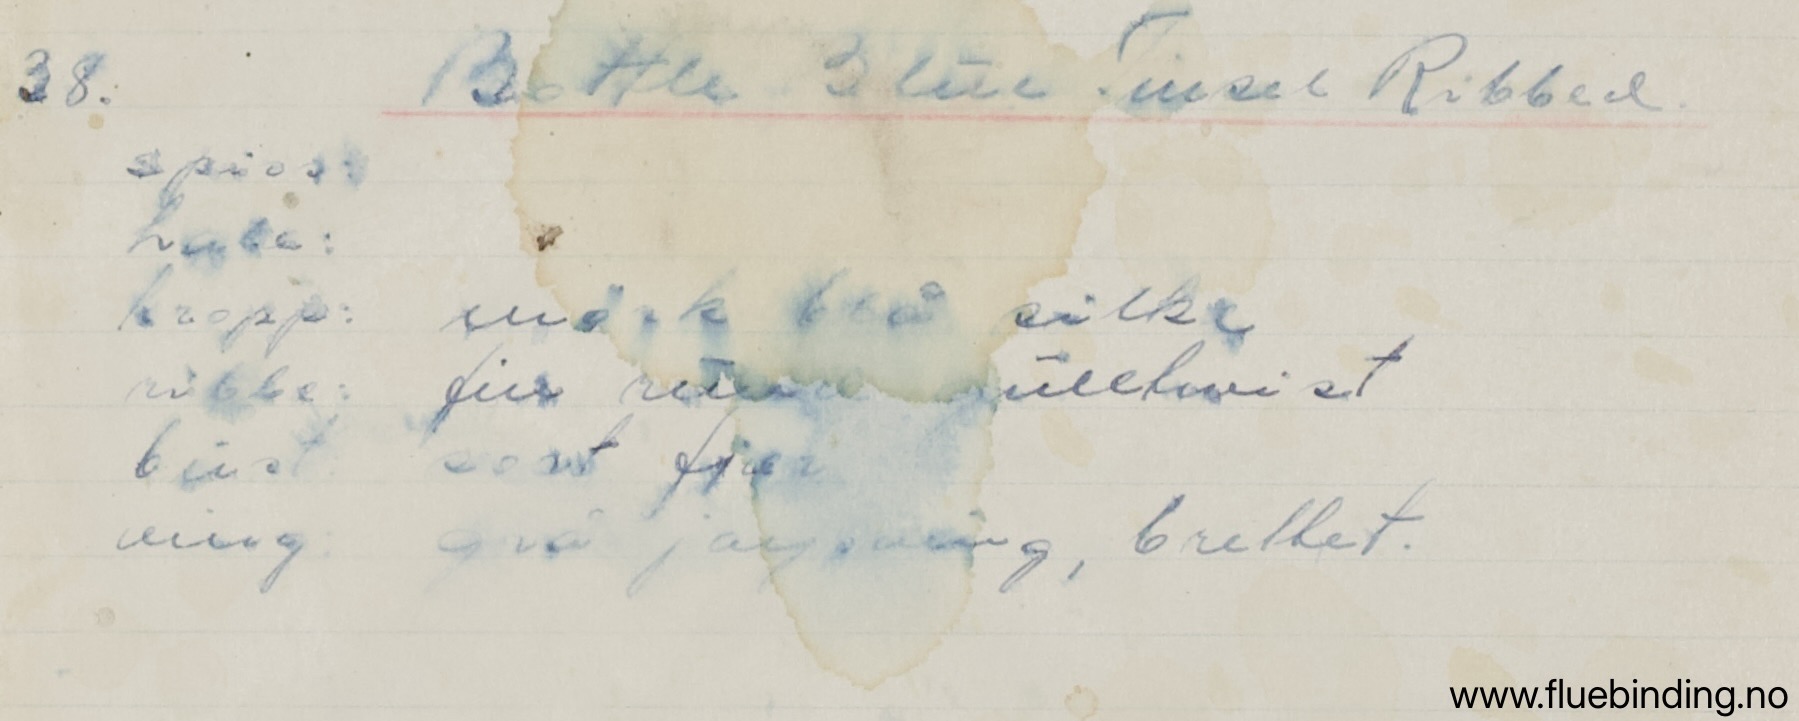 38. Bottle Blue Tinsel Ribbed.
spiss:
hale:
kropp: mörk blå silke
ribbe: fin rund gulltwist
bust: sort fjær
ving: grå jaypoving, brettet.
www.fluebinding.no